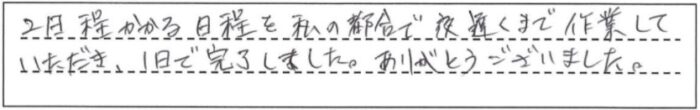 2日程かかる日程を私の都合で夜遅くまで作業して
いただき、1日で完了しました。ありがとうございました。